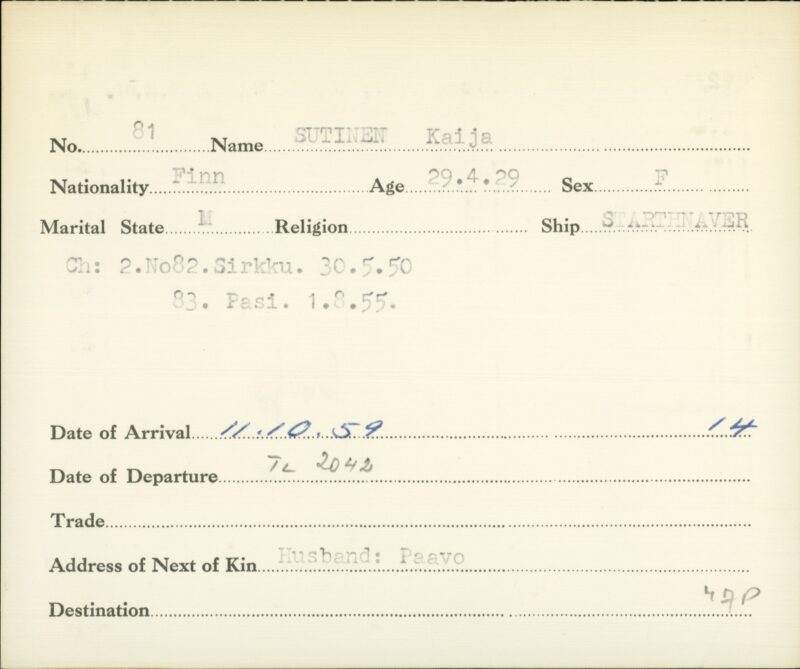 No. 81 Name SUTINEN Kaija
Nationality Finn Age 29.4.29 Sex F
Marital State M Religion Ship STARTHNAVER
Ch: 2.No82.Sirkku. 30.5.50
83. Pasi. 1.8.55.
Date of Arrival 11.10.59 14
Date of Departure TL 2042
Trade
Address of Next of Kin Husband: Paavo
Destination